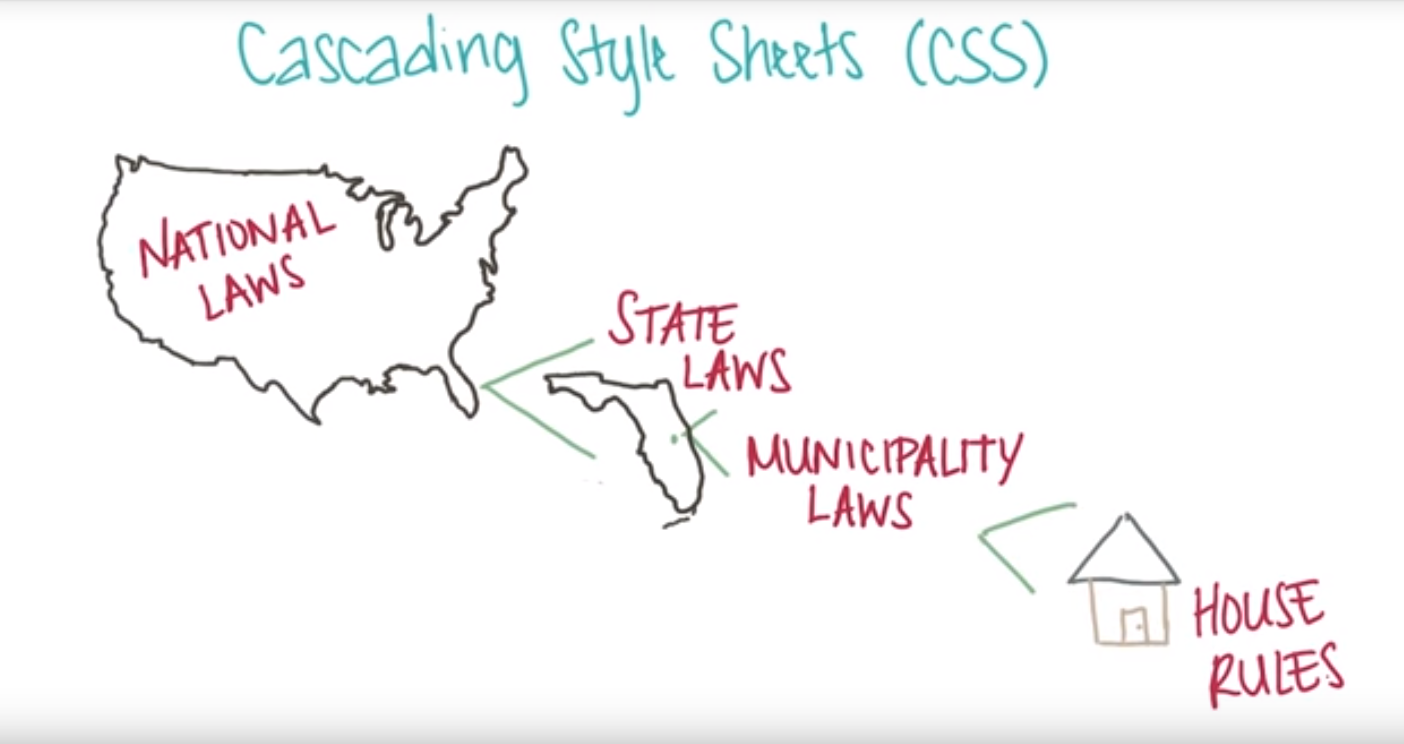 Cascading Style Sheets (CSS)
NATIONAL
LAWS
STATE
LAWS
MUNICIPALITY
LAWS
HOUSE
RULES